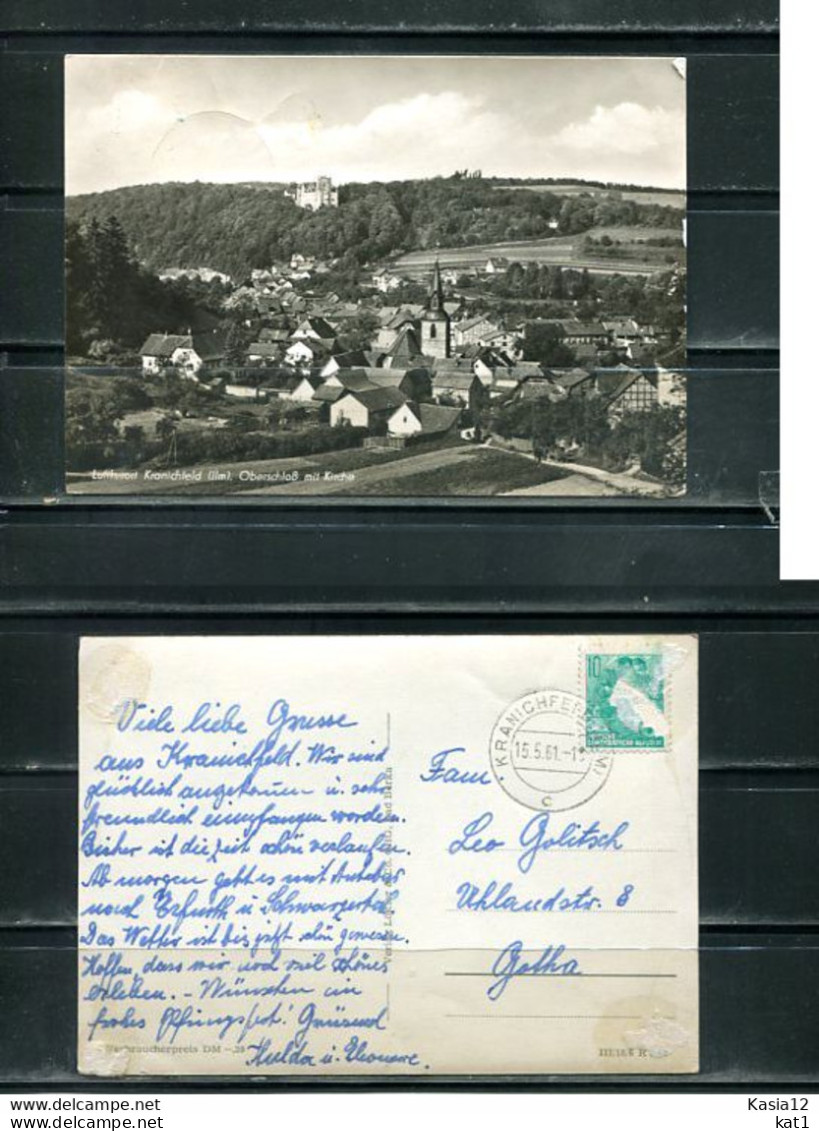 Luftkurort Kranichfeld (Ilm), Oberschloß mit Kirche
Viele liebe Grüsse
aus Kranichfeld. Wir sind
glücklich angekommen u. sehr
freundlich empfangen worden.
Bisher ist die Zeit schön verlaufen.
Ab morgen geht es mit Autobus
nach Erfurth u Schwarzatal.
Das Wetter ist bis jetzt schön gewesen.
Hoffen, dass wir noch viel schönes
erleben. – Wünschen ein
frohes Pfingstfest! Grüsend
Hulda u. Eleonore.
Verbraucherpreis DM
Bad Berka
KRANICHFELD
15.5.61.-1
c
10
Fam
Leo Golitsch
Uhlandstr. 8
Gotha
www.delcampe.net
Kasia12
kat1